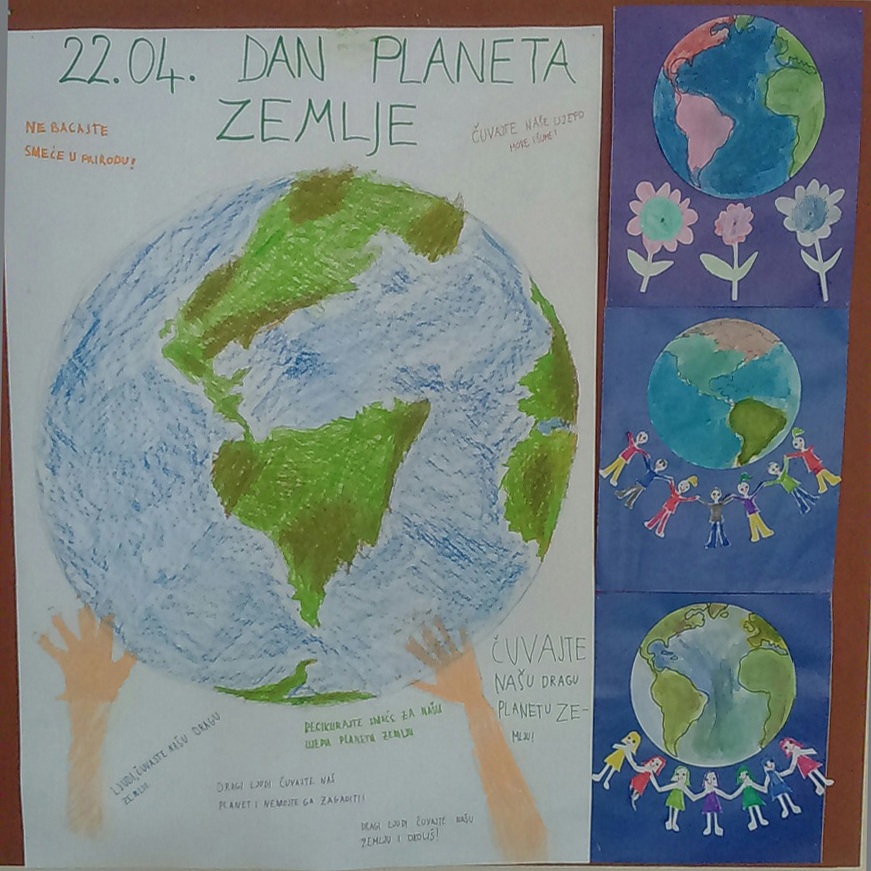 22.04. DAN PLANETA
ZEMLJE
NE BACAJTE
SMEĆE U PRIRODU!
ČUVAJTE NAŠE LIJEPO
MORE I ŠUME!
ČUVAJTE
NAŠU DRAGU
PLANETU ZE-
MLJU!
LJUDI, ČUVAJTE NAŠU DRAGU
ZEMLJU
RECIKLIRAJTE SMEĆE ZA NAŠU
LIJEPU PLANETU ZEMLJU
DRAGI LJUDI ČUVAJTE NAŠ
PLANET I NEMOJTE GA ZAGADITI!
DRAGI LJUDI ČUVAJTE NAŠU
ZEMLJU I OKOLIŠ!